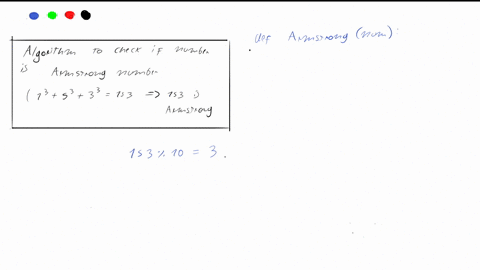 Algorithm to check if number
is Armstrong number
( 1³ + 5³ + 3³ = 153 => 153 is
Armstrong
153 % 10 = 3 .
def Armstrong (num) :